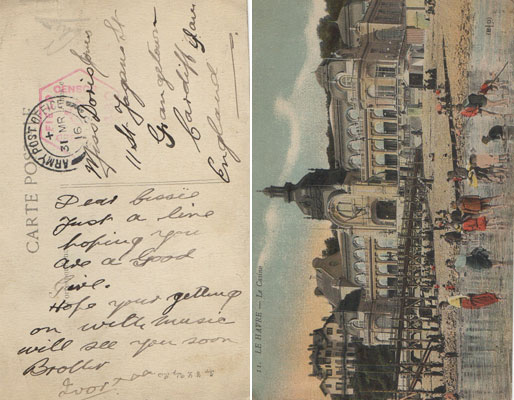 CARTE POSTALE
ARMY POST OFFICE
31 MR
16
Miss Doris
11 St Fagans St
Grangetown
Cardiff Glam
England
Dear
Just a line
hoping you
are a Good
Girl.
Hope your getting
on with music
will see you soon
Brother
Ivor
12. LE HAVRE — Le Casino